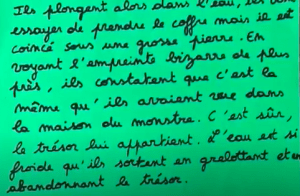 Ils plongent alors dans l'eau, les
essayer de prendre le coffre mais il est
coincé sous une grosse pierre. En
voyant l'empreinte bizarre de plus
près, ils constatent que c'est la
même qu'ils avaient vue dans
la maison du monstre. C'est sûr,
le trésor lui appartient. L'eau est si
froide qu'ils sortent en grelottant et en
abandonnant le trésor.